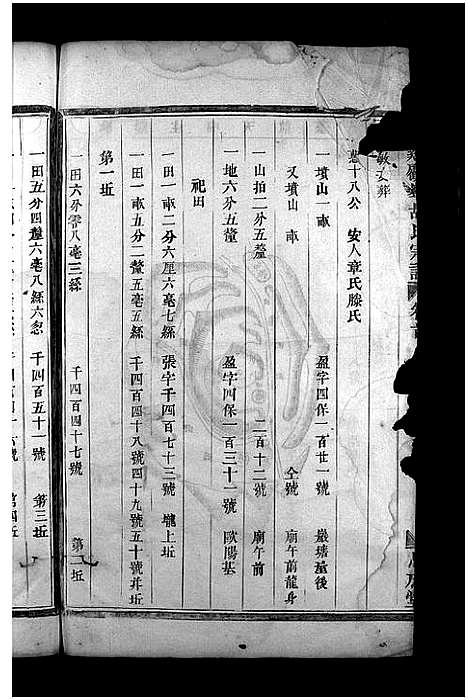 敏公葬
十八公　安人章氏滕氏
一墳山一畝　盈字四保一百廿一號　巖塘堇後
又墳山　畝　仝號　廟午前龍身
一山拍二分五釐　二百十二號　廟午前
一地六分五釐　盈字四保一百三十一號　歐陽基
祀田
一田一畝二分六厘六毫七絲　張字千四百七十三號　壠上坵
一田一畝五分二釐五毫五絲　千四百四十八號四十九號五十號并坵
第一坵
一田六分零八毫三絲　千四百四十七號　第二坵
一田五分四釐六毫八絲六忽　千四百五十一號　第三坵
號　第四坵
氏宗譜